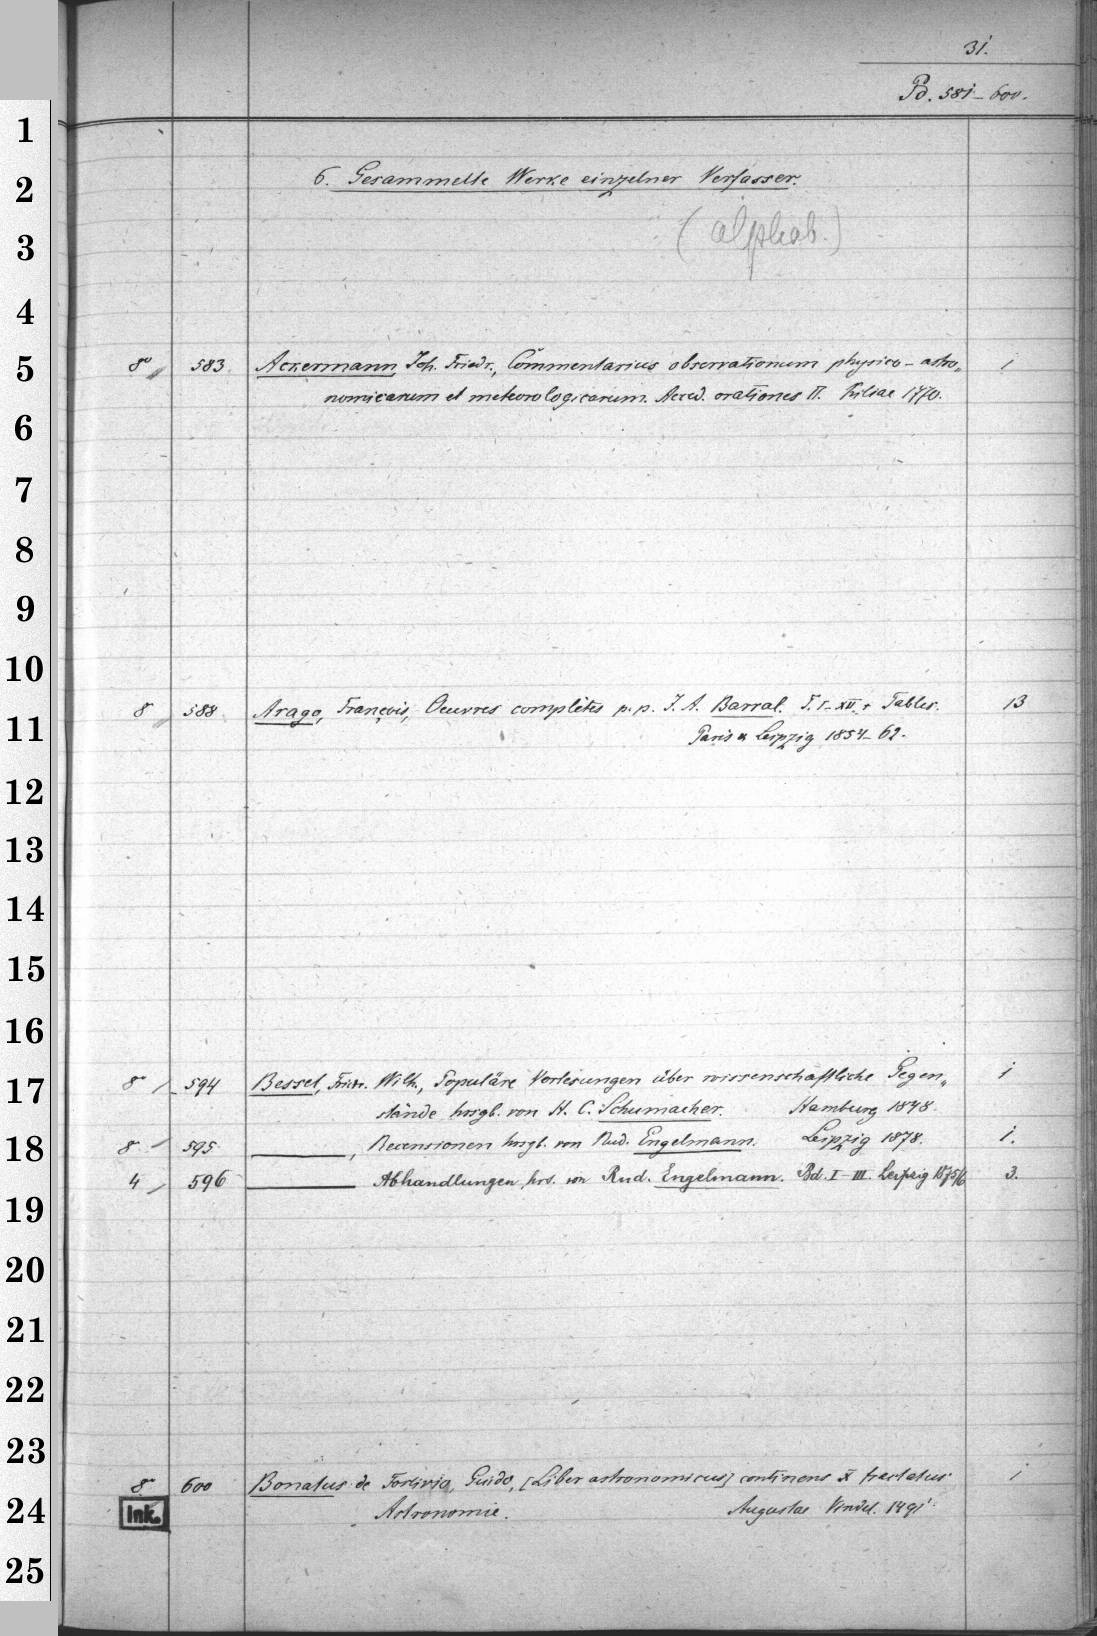 31.
Pd. 581-600.
1
2
3
4
5
6
7
8
9
10
11
12
13
14
15
16
17
18
19
20
21
22
23
24
25
6. Gesammelte Werke einzelner Verfasser.
(alphab.)
8° 583 Ackermann, Joh. Friedr., Com̄entarius observationum physico-astro„ 1
nomicarum et meteorologicarum. Acced. orationes II. Kiliae 1770.
8 588 Arago, François, Oeuvres complètes p. p. J. A. Barral. T. I-XII + Tables. 13
Paris & Leipzig 1854-62.
8 594 Bessel, Friedr. Wilh., Populäre Vorlesungen über wissenschaftliche Gegen„ 1
stände hrsgb. von H. C. Schumacher. Hamburg 1848.
8 595 ———, Recensionen hrsgb. von Rud. Engelmann. Leipzig 1878. 1.
4 596 ——— Abhandlungen, hrs. von Rud. Engelmann. Bd. I-III. Leipzig 1875/6 3.
8 600 Bonatus de Forlivio, Guido, [Liber astronomicus] continens X tractatus 1
Ink. Astronomie. Augustae Vindel. 1491